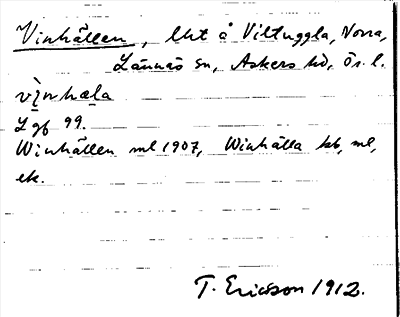 Vinhällen, lht å Viltuggla, Norra,
Lännäs sn, Askers hd, Ör. l.
vìnhæla
Lgf 99.
Winhällen ml 1907, Winhälla kb, ml,
ek.
T. Ericsson 1912.